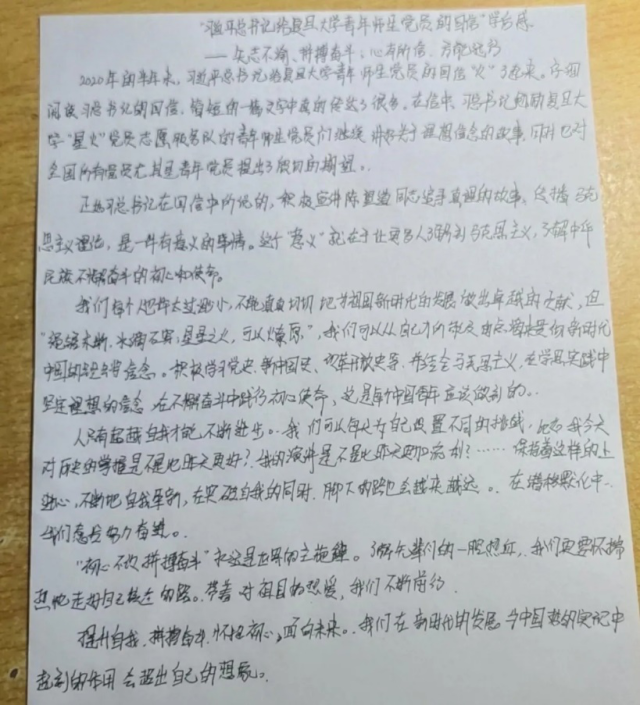 "习近平总书记给复旦大学青年师生党员的回信"学后感
—— 矢志不渝、拼搏奋斗、心有所信、方能远行
2020年的半年来，习近平总书记给复旦大学青年师生党员的回信"火"了起来。仔细
阅读习总书记的回信，短短的一篇文字中真的体会了很多。在信中，习总书记勉励复旦大
学"星火"党员志愿服务队的青年师生党员们继续讲好关于理想信念的故事，同时也对
全国所有党员尤其是青年党员提出了殷切的期望。
正如习总书记在回信中所说的，积极宣讲陈望道同志追寻真理的故事，传播马克
思主义理论，是一件有意义的事情。这个"意义"就在于让更多人了解到马克思主义，了解中华
民族不懈奋斗的初心和使命。
我们每个人也许太过渺小，不能真真切切地为祖国新时代的发展做出卓越的贡献，但
"绳锯木断，水滴石穿，星星之火，可以燎原"，我们可以从自己力所能及
中国的信念。积极学习党史、新中国史、改革开放史等，马克思主义，在学思实践中
坚定理想的信念，在不懈奋斗中践行初心使命，这是每个中国青年应该做到的。
人只有超越自我才能不断进步。我们可以每天为自己设置不同的挑战，比如我今天
对历史的掌握是不是比昨天更好？我的演讲是不是比昨天更加流利？……保持着这样的上
进心，不断地自我革新，在突破自我的同时，脚下的路也会越来越远。在潜移默化中，
我们总是努力奋进。
"初心不改 拼搏奋斗"永远是世界的主旋律。了解先辈们的一腔热血，我们更要怀揣
热忱走好自己接过的路。带着对祖国的热爱，我们不断前行。
提升自我，拼搏奋斗，怀抱初心，面向未来。我们在新时代的发展与中国梦的实现中
起到的作用会超出自己的想象。